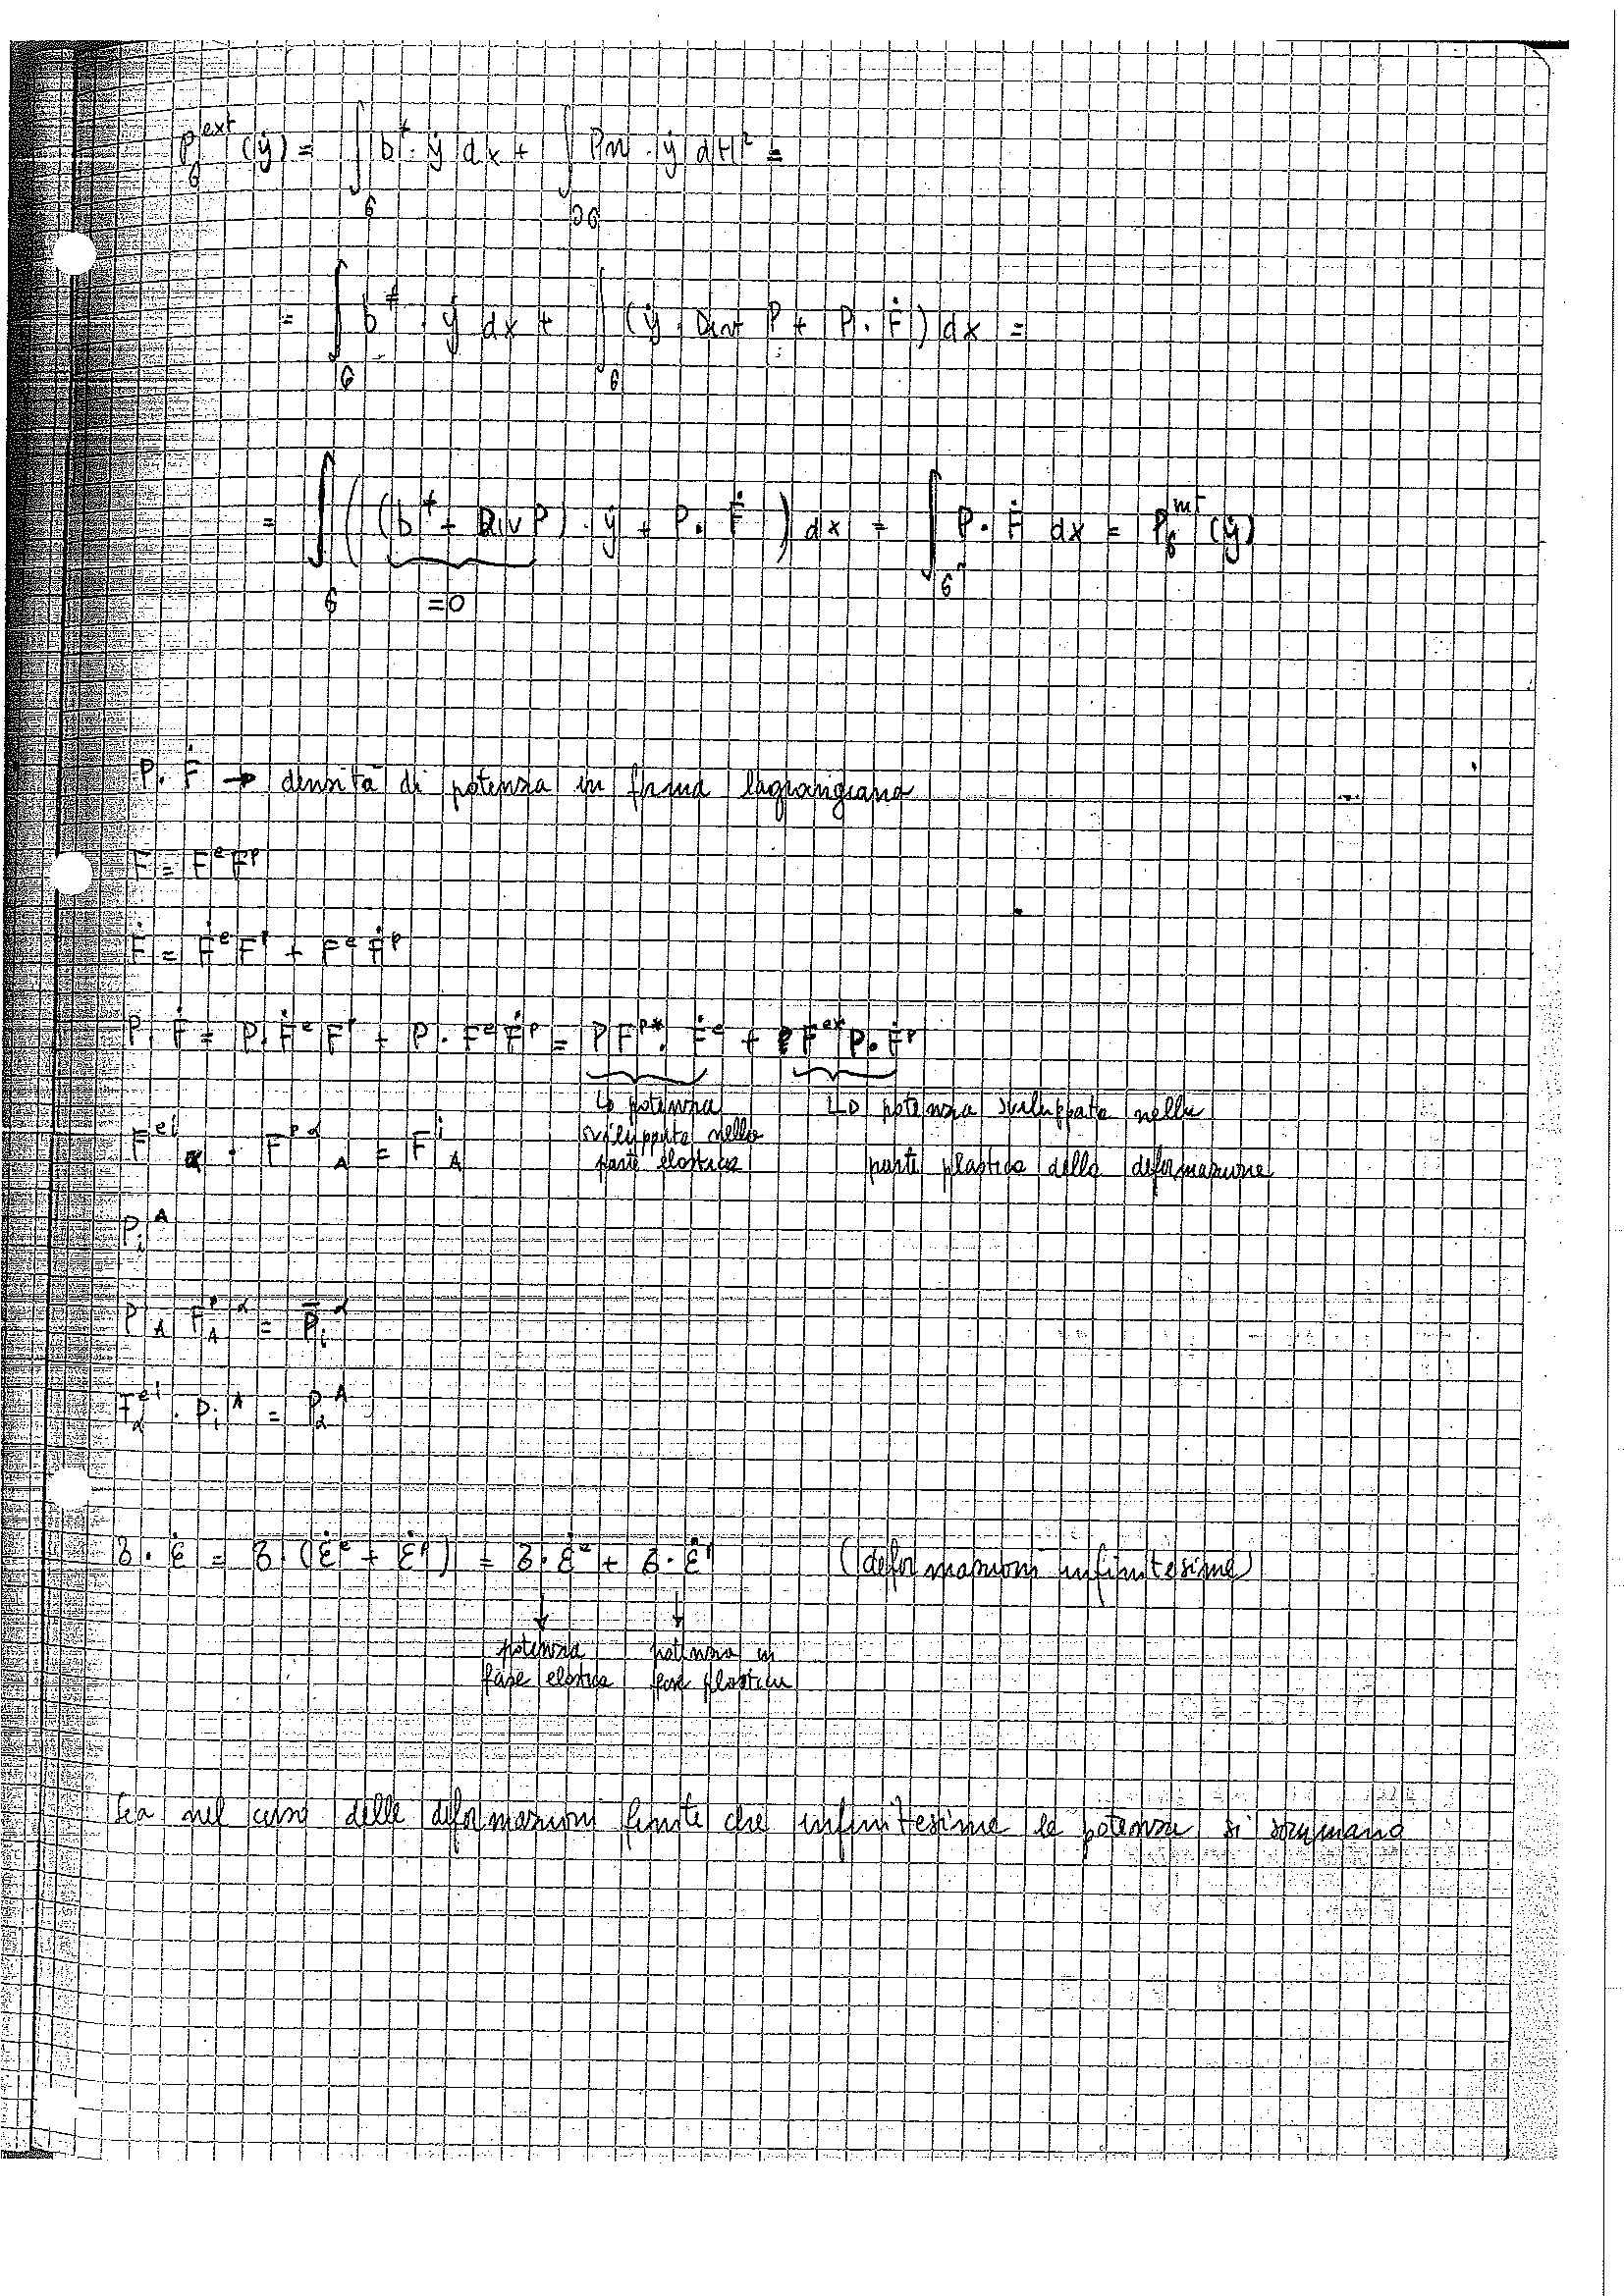 P_б^ext (ẏ) = ∫_б b^‡ · ẏ dx + ∫_∂б Pn · ẏ dH² =
= ∫_б b^‡ · ẏ dx + ∫_б (ẏ · Div P + P · Ḟ) dx =
= ∫_б ((b^‡ + Div P) · ẏ + P · Ḟ) dx = ∫_б P · Ḟ dx = P_б^int (ẏ)
= 0
P · Ḟ → densità di potenza in forma lagrangiana
F = F^e F^p
Ḟ = Ḟ^e F^p + F^e Ḟ^p
P · Ḟ = P · Ḟ^e F^p + P · F^e Ḟ^p = P F^p* · Ḟ^e + F^e* P · Ḟ^p
↳ potenza sviluppata nella parte elastica
↳ potenza sviluppata nella parte plastica della deformazione
F^ei_α · F^pα_A = F^i_A
P_i^A
P_A F_A^pα = P̄_i^α
F_α^ei · P_i^A = P_α^A
б · ε̇ = б · (ε̇^e + ε̇^p) = б · ε̇^e + б · ε̇^p (deformazioni infinitesime)
↓ ↓
potenza potenza in
fase elastica fase plastica
Sia nel caso delle deformazioni finite che infinitesime le potenza si sommano